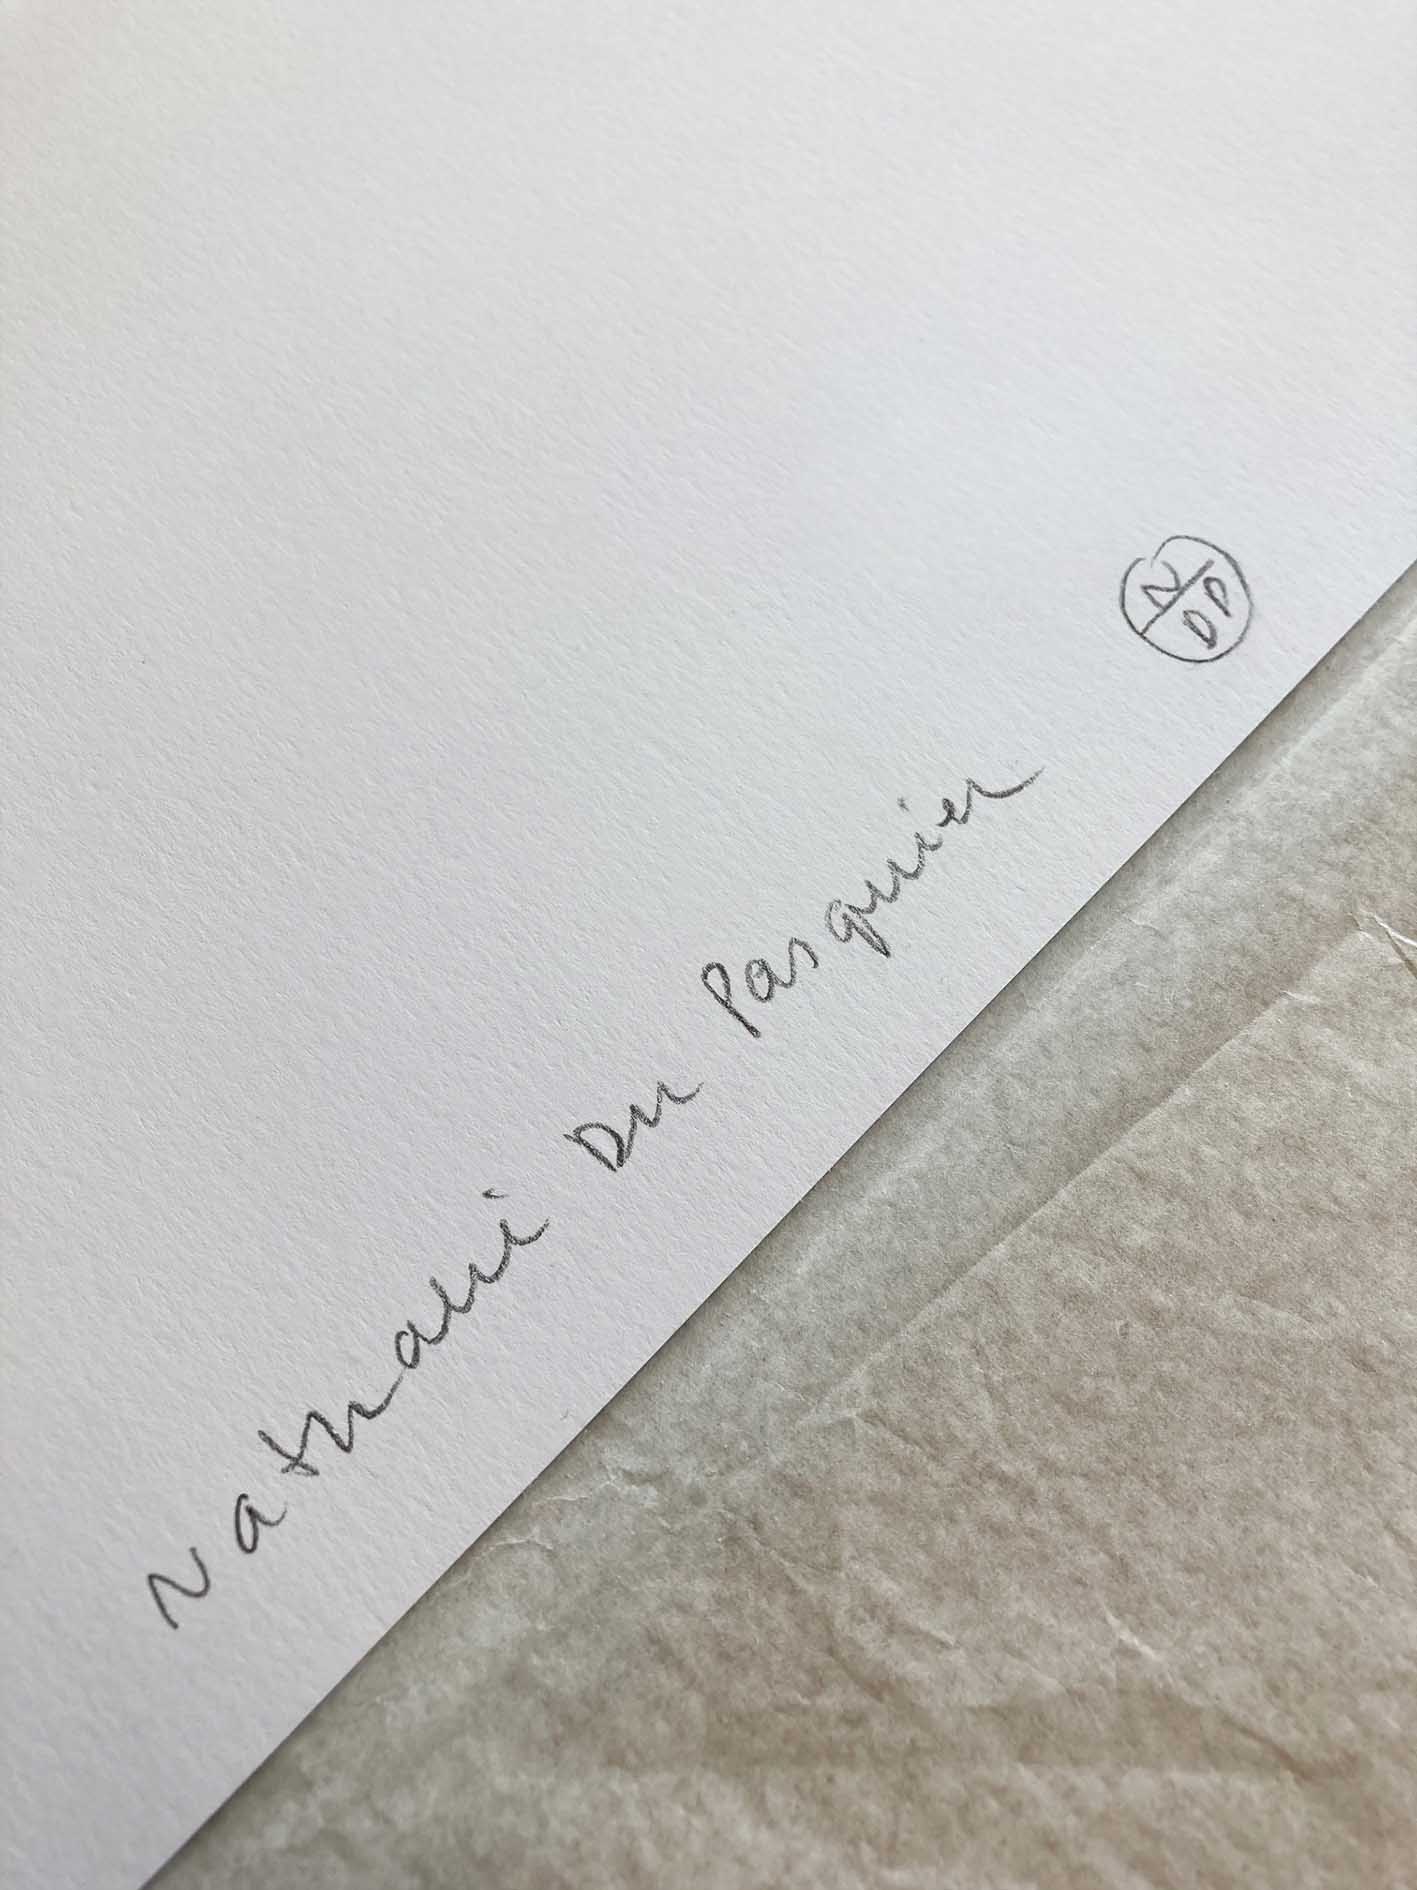 Nathalie Du Pasquier
N
DP